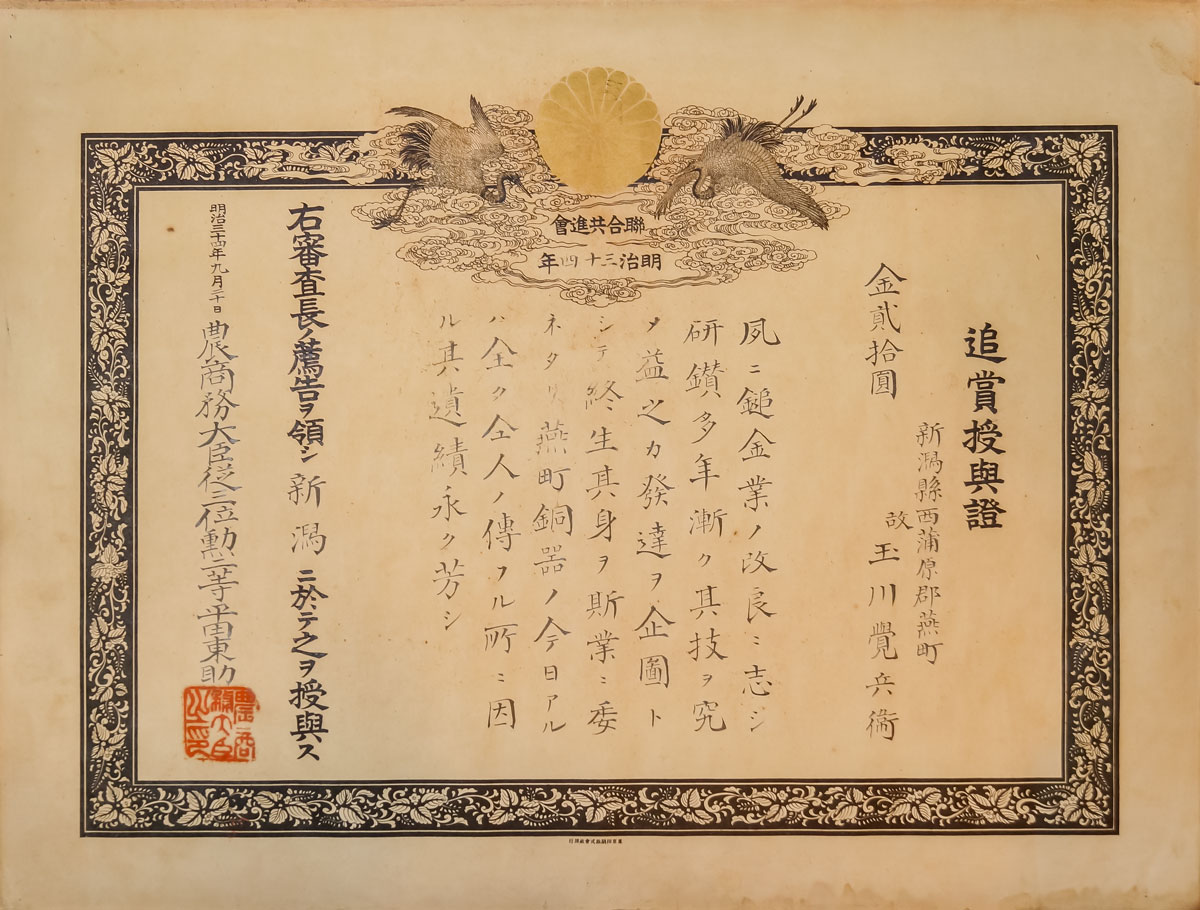 聯合共進會
明治三十四年
追賞授與證
新潟縣西蒲原郡燕町
故 玉川覺兵衞
金貳拾圓
夙ニ鎚金業ノ改良ニ志シ
研鑚多年漸ク其技ヲ究
メ益之カ發達ヲ企圖ト
シテ終生其身ヲ斯業ニ委
ネタリ燕町銅器ノ今日アル
ハ全ク仝人ノ傳フル所ニ因
ル其遺績永ク芳シ
右審査長ノ薦告ヲ領シ新潟ニ於テ之ヲ授與ス
明治三十四年九月二十日
農商務大臣從三位勳二等平田東助
農商務大臣之印